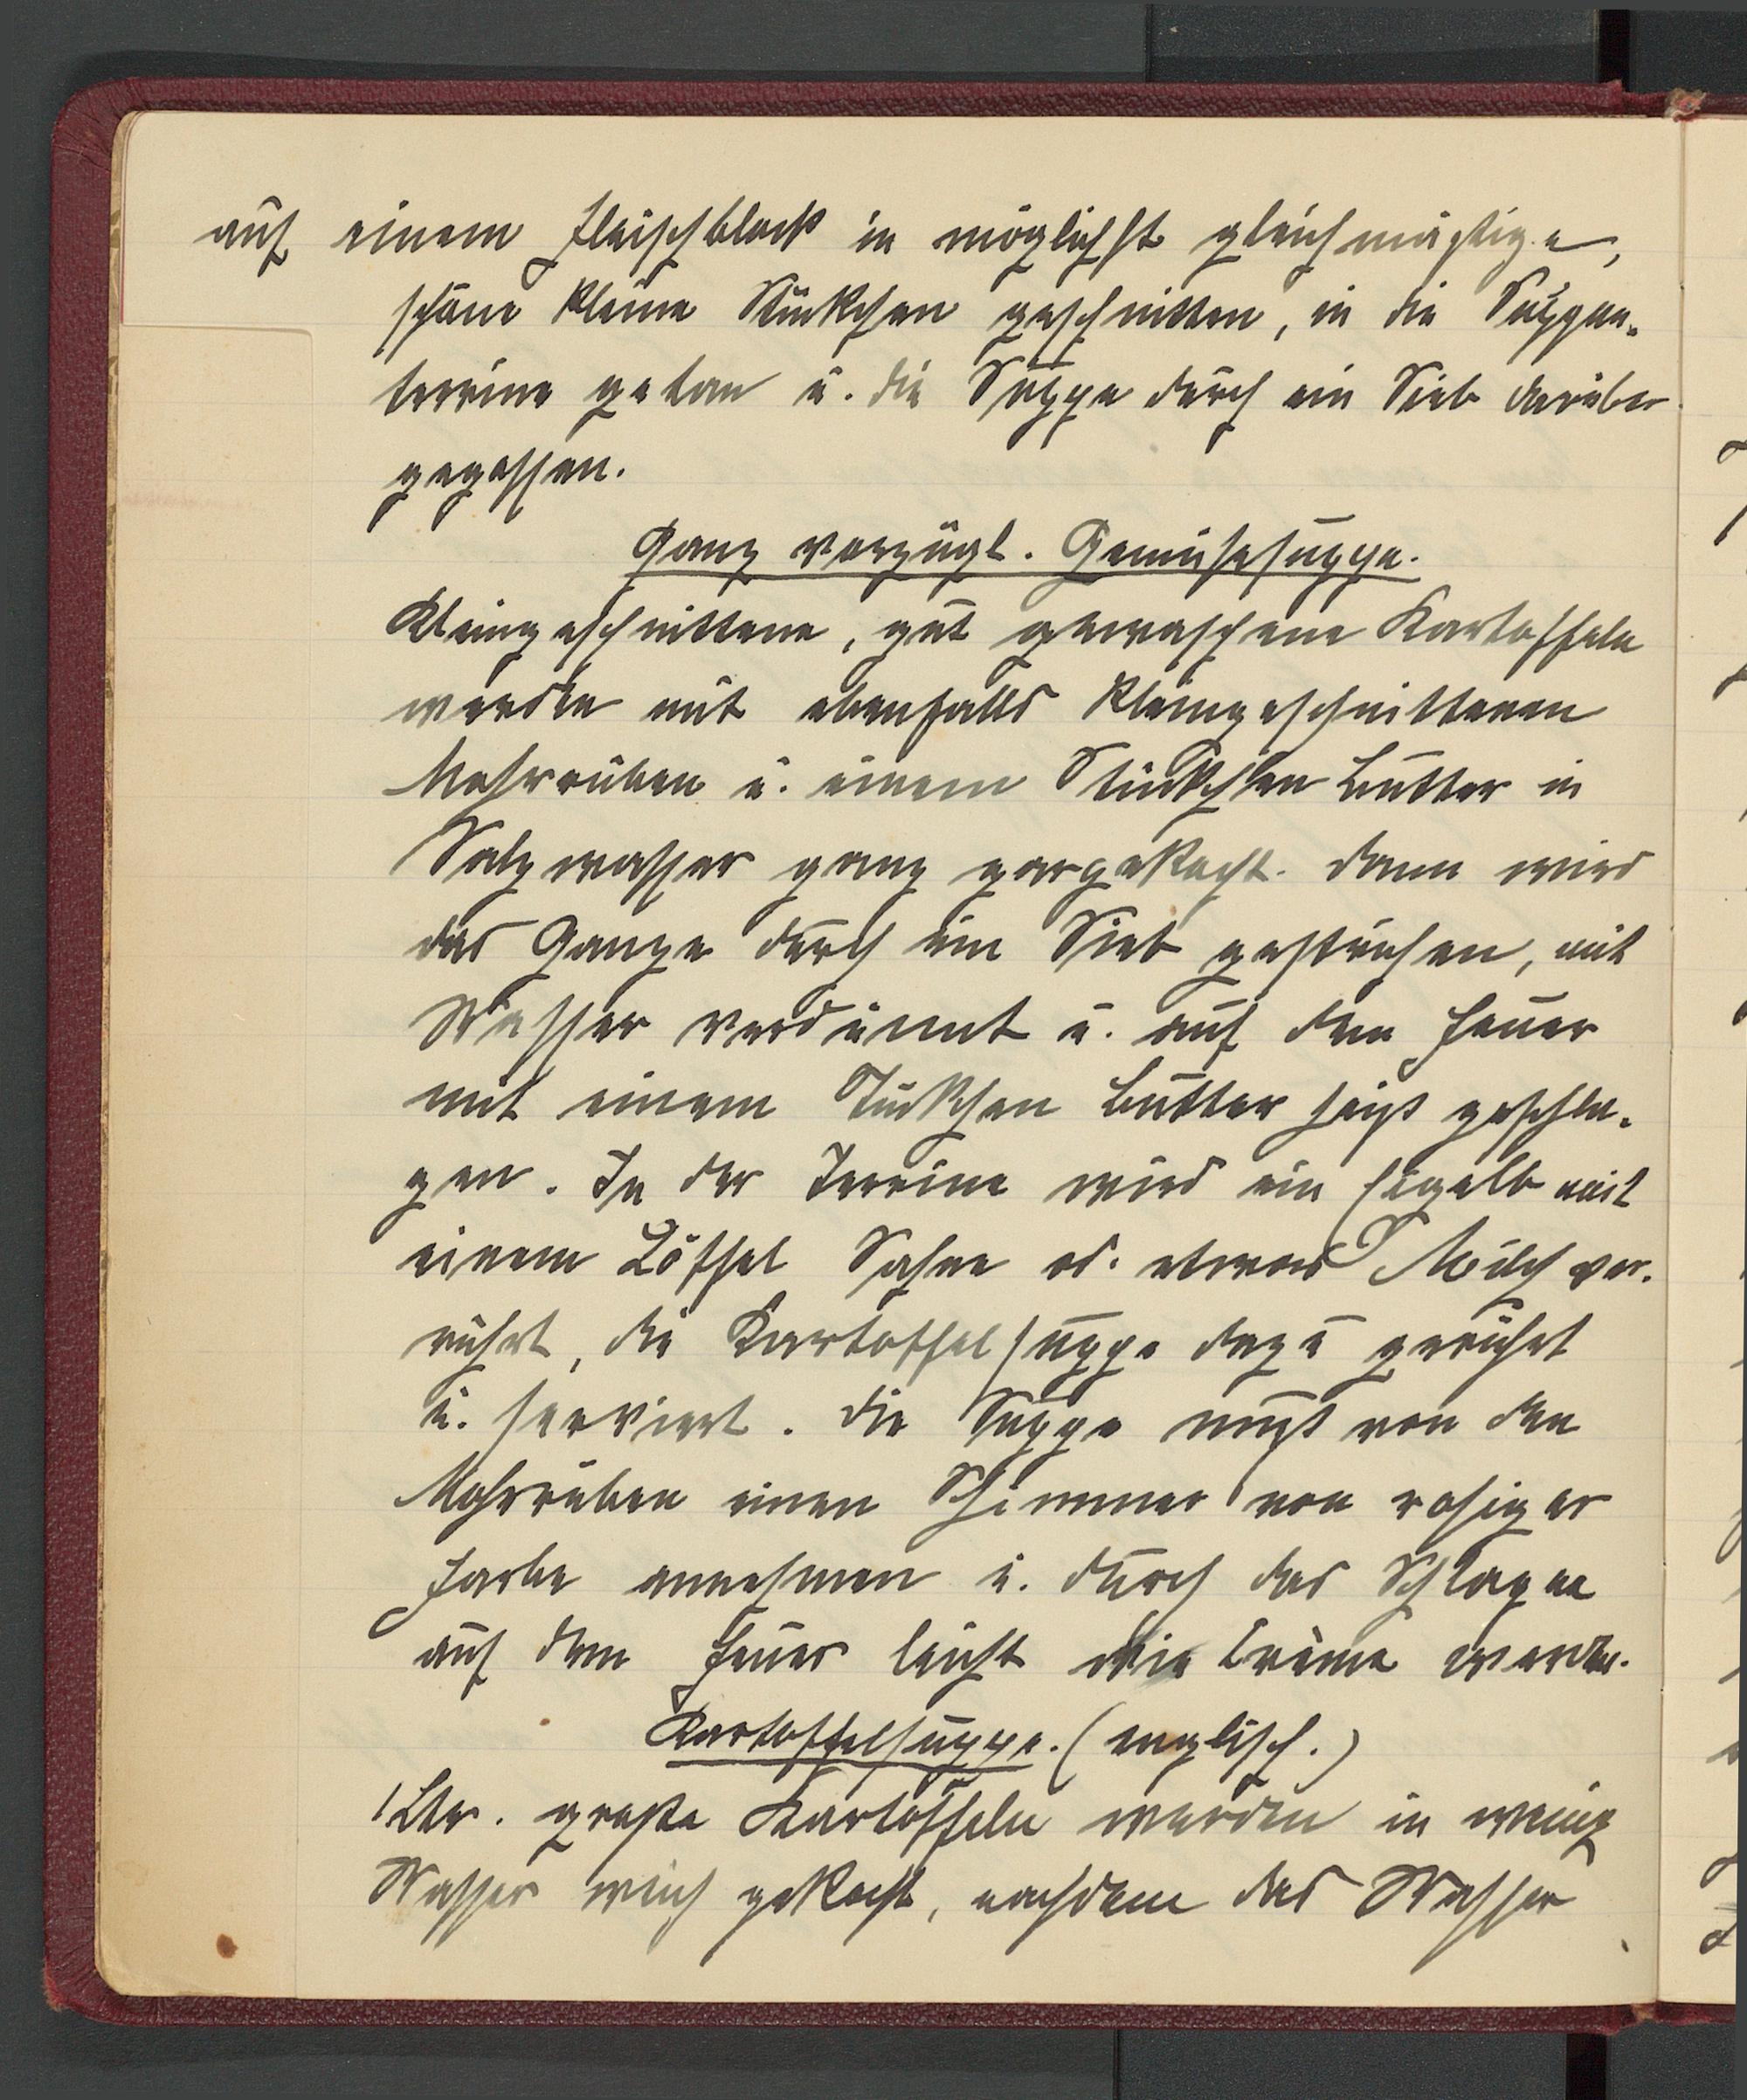 auf einem Fleischblock in möglichst gleichmäßige,
schöne kleine Stückchen geschnitten, in die Suppen-
terrine getan u. die Suppe durch ein Sieb darüber
gegossen.
Ganz vorzügl. Gemüsesuppe.
Kleingeschnittene, gut gewaschene Kartoffeln
werden mit ebenfalls kleingeschnittenen
Mohrrüben u. einem Stückchen Butter in
Salzwasser ganz gargekocht. Dann wird
das Ganze durch ein Sieb gestrichen, mit
Wasser verdünnt u. auf dem Feuer
mit einem Stückchen Butter heiß geschla-
gen. In der Terrine wird ein Eigelb mit
einem Löffel Sahne od. etwas Milch ver-
rührt, die Kartoffelsuppe dazu gerührt
u. serviert. Die Suppe muß von den
Mohrrüben einen Schimmer von rosiger
Farbe annehmen u. durch das Schlagen
auf dem Feuer leicht wie Crème werden.
Kartoffelsuppe. (englisch.)
1 Ltr. große Kartoffeln werden in wenig
Wasser weich gekocht, nachdem das Wasser